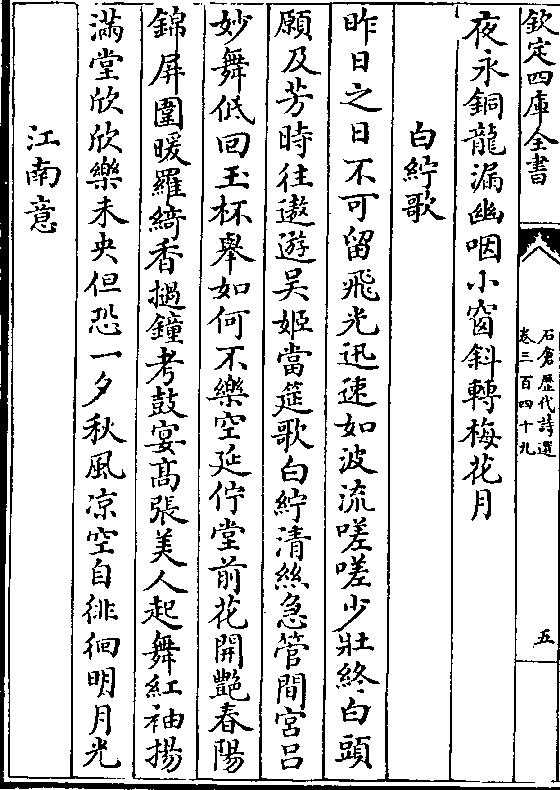 欽定四庫全書
石倉歷代詩選
卷三百四十九
五
夜永銅龍漏幽咽小窗斜轉梅花月
白紵歌
昨日之日不可留飛光迅速如波流嗟嗟少壯終白頭
願及芳時往遨遊吳姬當筵歌白紵清絲急管間宮呂
妙舞低回玉杯舉如何不樂空延佇堂前花開艷春陽
錦屏圍暖羅綺香撾鐘考鼓宴高張美人起舞紅袖揚
滿堂欣欣樂未央但恐一夕秋風凉空自徘徊明月光
江南意